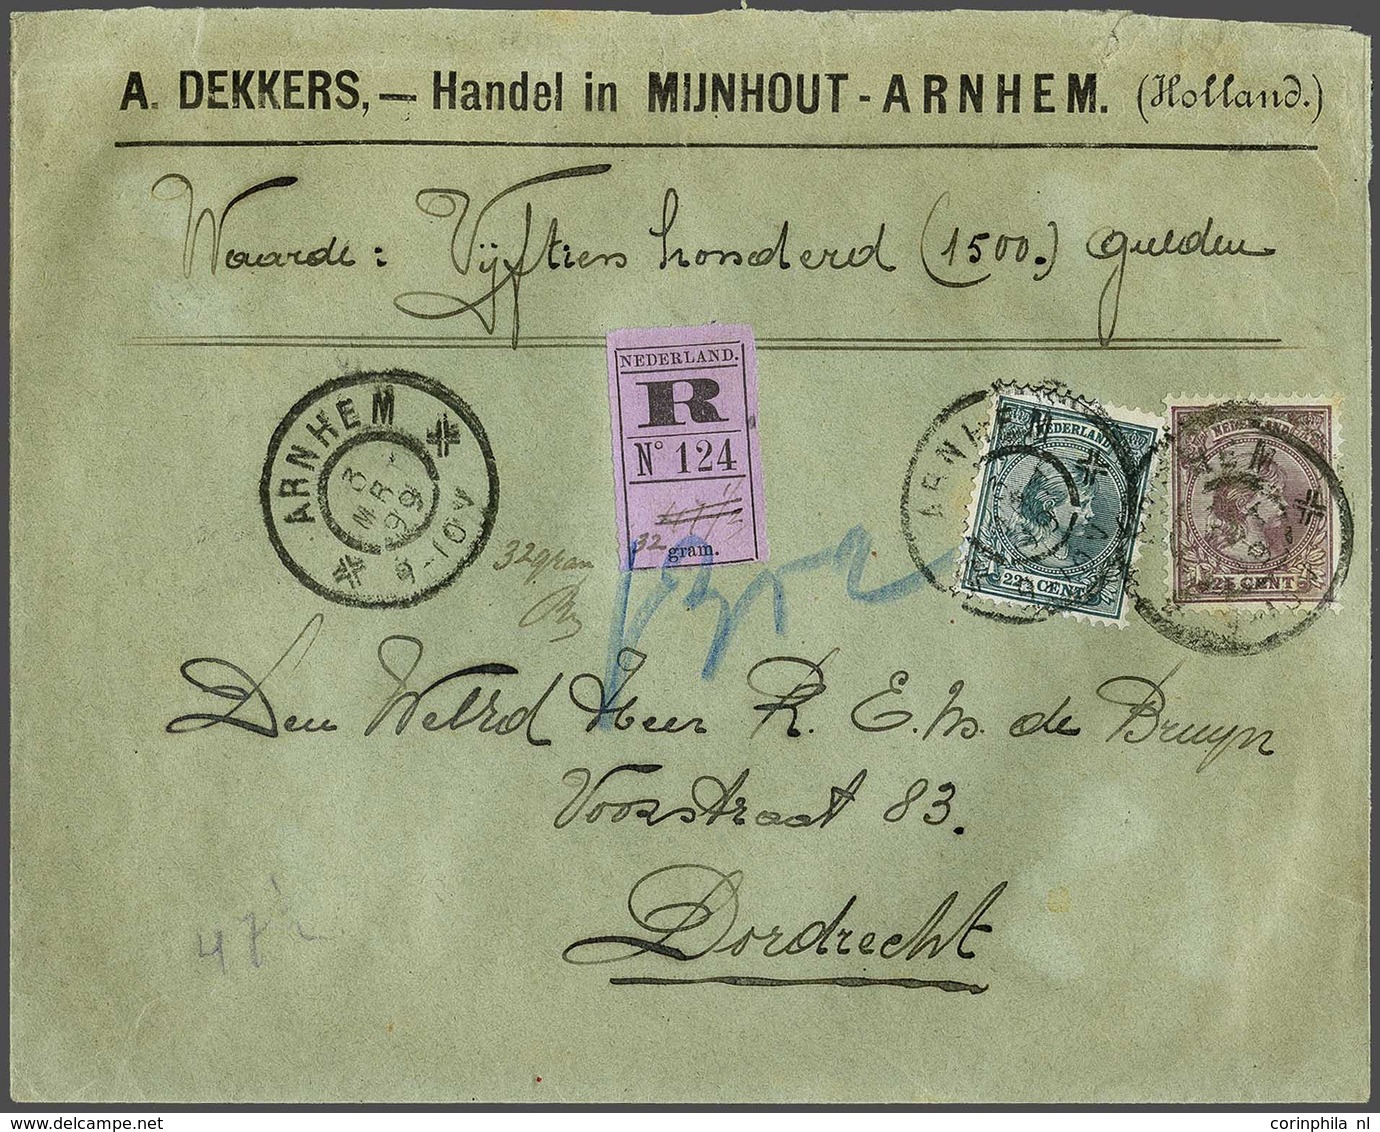 A. DEKKERS, — Handel in MIJNHOUT - ARNHEM. (Holland.)
Waarde: Vijftien honderd (1500.) gulden
NEDERLAND.
R
No 124
32 gram.
32 gram
ARNHEM
3 MRT 99
9-10V
ARNHEM
NEDERLAND
22½ CENT
NEDERLAND
25 CENT
Den WelEd Heer R. E. M. de Bruyn
Voorstraat 83.
Dordrecht
47½
corinphila nl